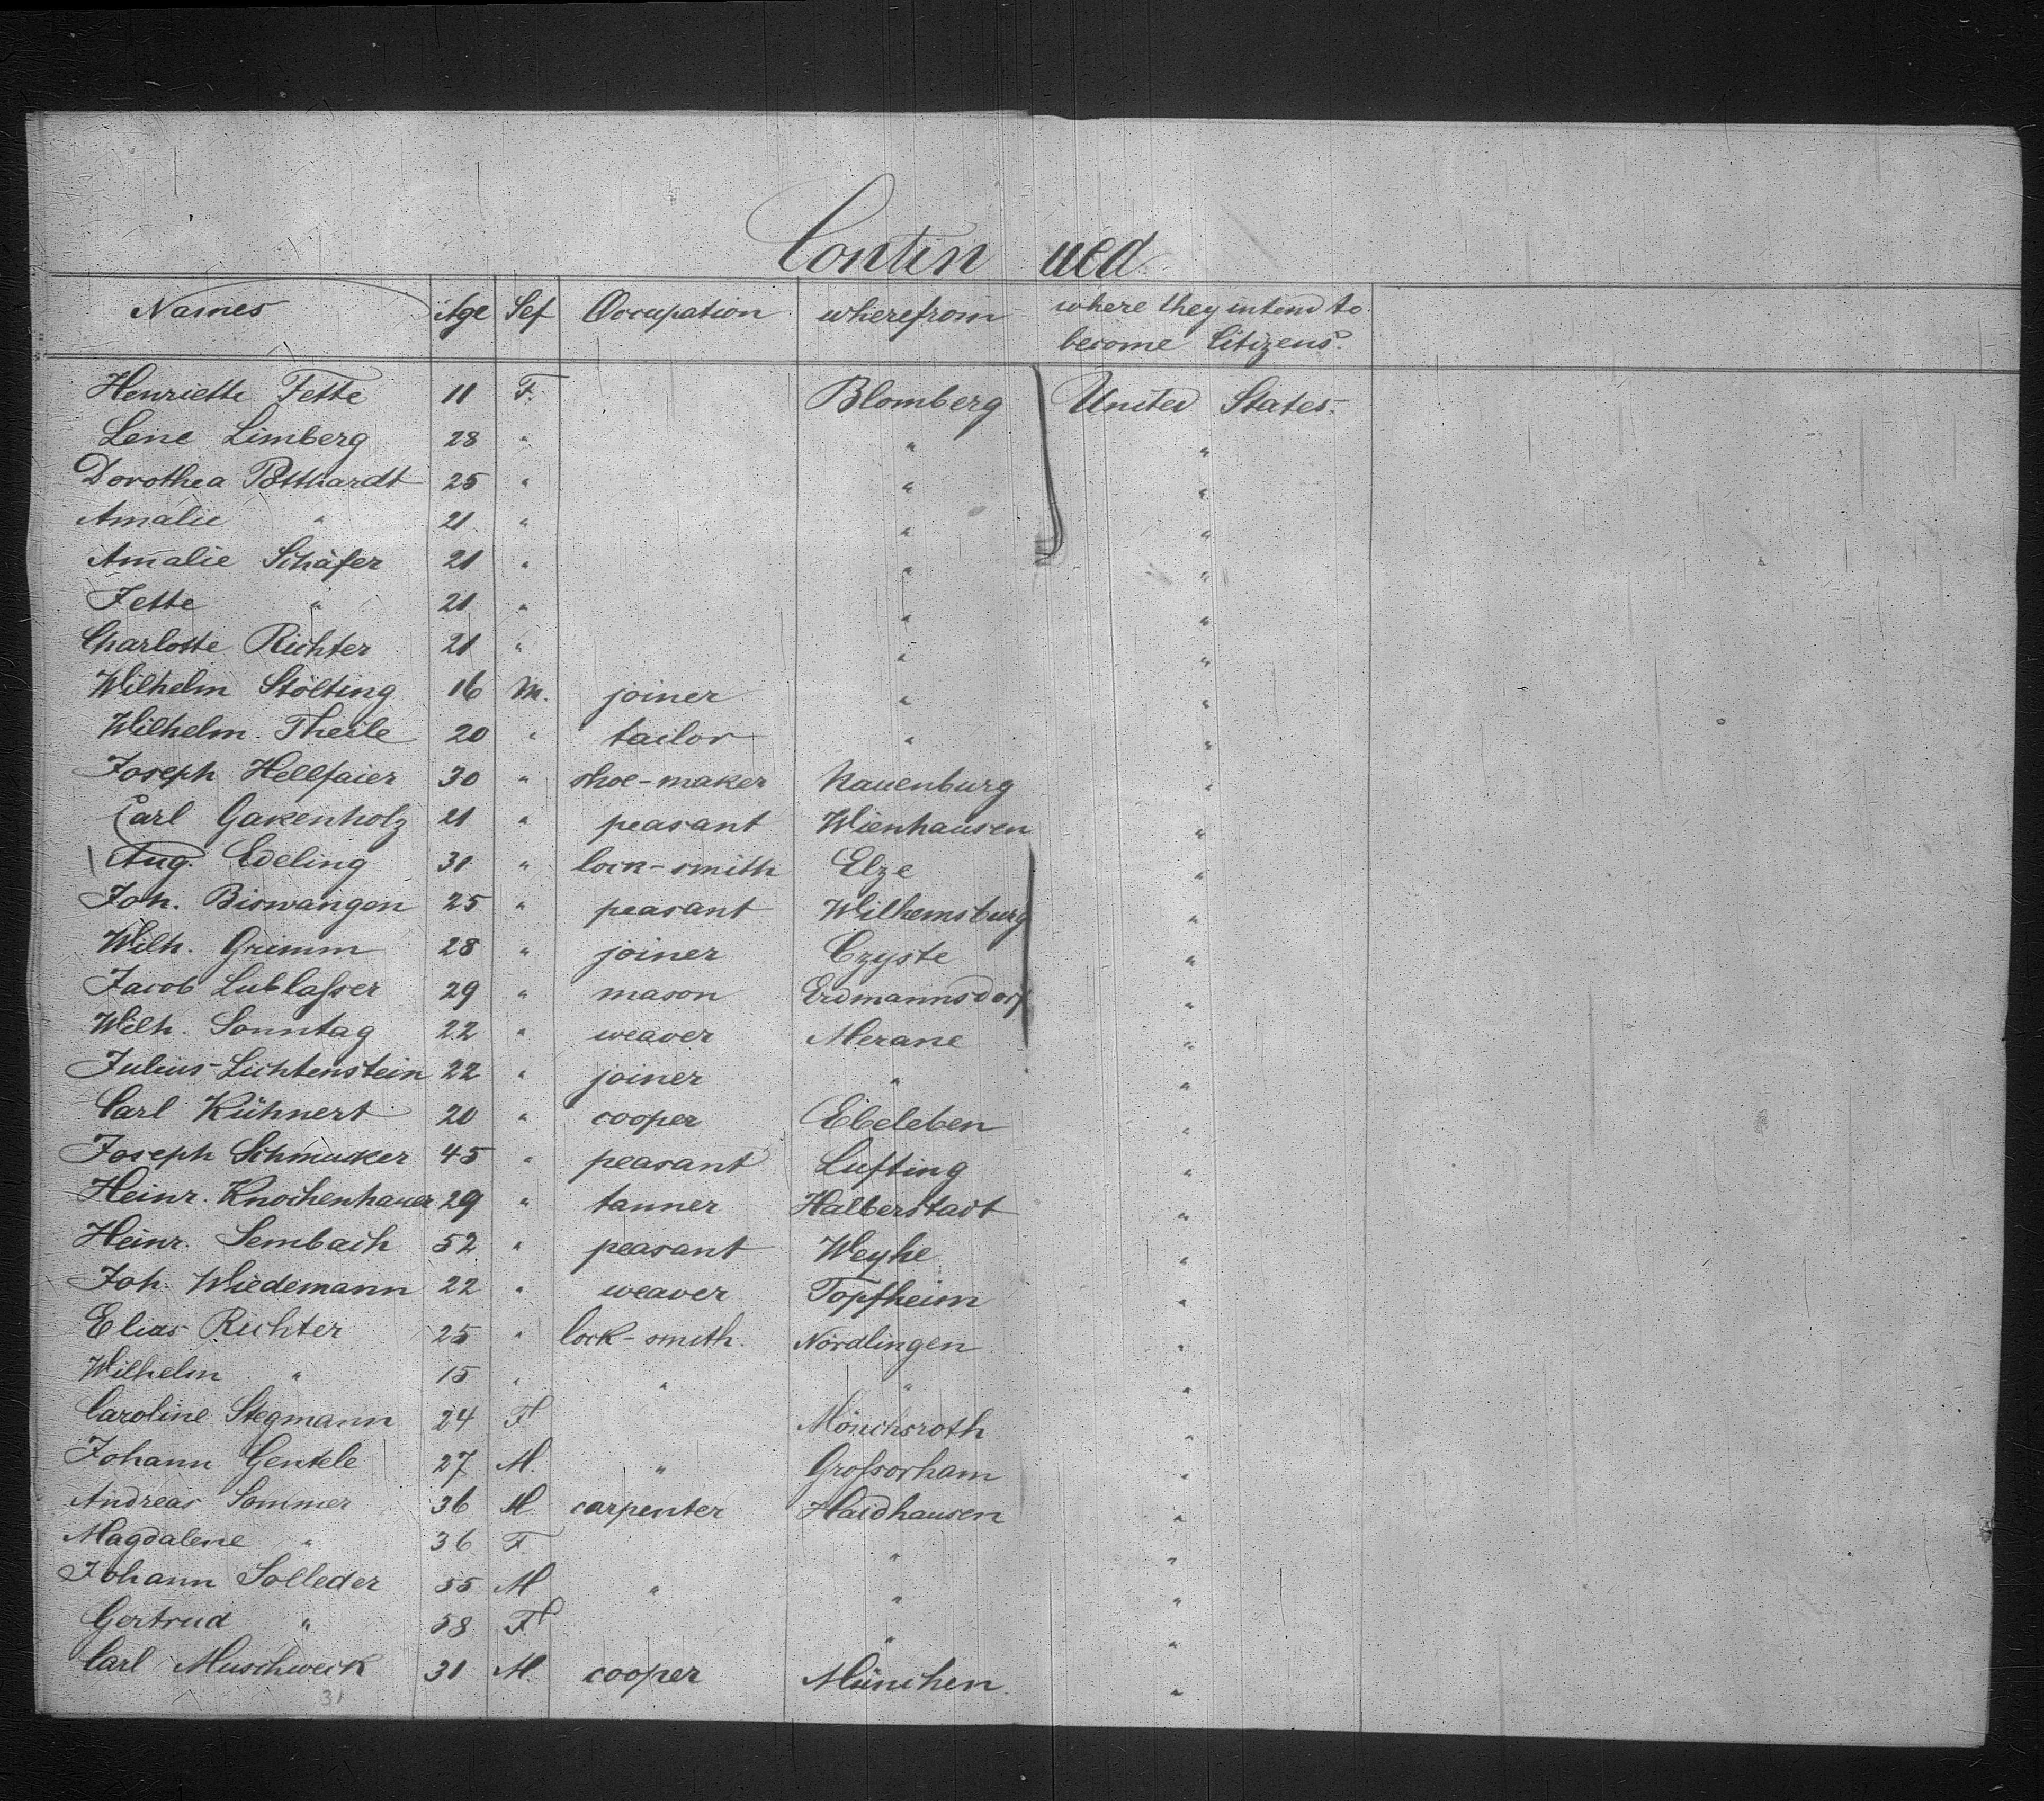 Contin ued
Names Age Sex Occupation wherefrom where they intend to
become Citizens.
Henriette Fette 11 F. Blomberg United States.
Lene Limberg 28 " " "
Dorothea Potthardt 25 " " "
Amalie " 21 " " "
Amalie Schäfer 21 " " "
Jette " 21 " " "
Charlotte Richter 21 " " "
Wilhelm Stölting 16 M. joiner " "
Wilhelm Theile 20 " tailor " "
Joseph Hellfaier 30 " shoe-maker Nauenburg "
Carl Gakenholz 21 " peasant Wienhausen "
Aug. Edeling 31 " lock-smith Elze "
Joh. Biswangen 25 " peasant Wilhemsburg "
Wilh. Grimm 28 " joiner Czyste "
Jacob Lublasser 29 " mason Erdmannsdorf "
Wilh. Sonntag 22 " weaver Merane "
Julius Lichtenstein 22 " joiner " "
Carl Kühnert 20 " cooper Ebeleben "
Joseph Schmucker 45 " peasant Lufting "
Heinr. Knochenhauer 29 " tanner Halberstadt "
Heinr. Sembach 52 " peasant Weyhe "
Joh. Wiedemann 22 " weaver Topfheim "
Elias Richter 25 " lock-smith. Nördlingen "
Wilhelm " 15 " " " "
Caroline Stegmann 24 F Mönchsroth "
Johann Gentele 27 M. " Grossorham "
Andreas Sommer 36 M carpenter Haidhausen "
Magdalene " 36 F. " "
Johann Solleder 55 M " " "
Gertrud " 58 F. " "
Carl Muschweck 31 M. cooper München. "
31